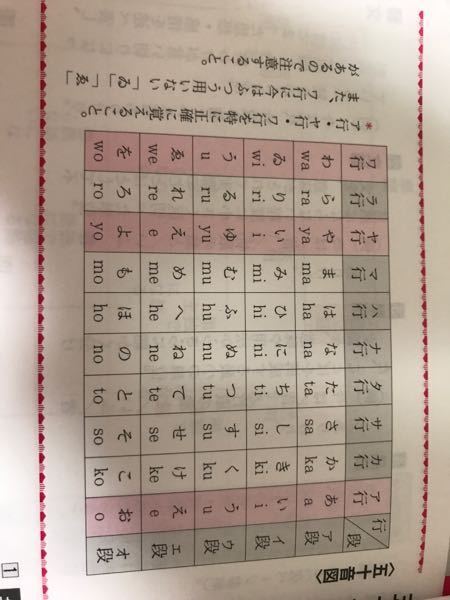 〈五十音図〉
行／段 ア段 イ段 ウ段 エ段 オ段
ア行 あ a い i う u え e お o
カ行 か ka き ki く ku け ke こ ko
サ行 さ sa し si す su せ se そ so
タ行 た ta ち ti つ tu て te と to
ナ行 な na に ni ぬ nu ね ne の no
ハ行 は ha ひ hi ふ hu へ he ほ ho
マ行 ま ma み mi む mu め me も mo
ヤ行 や ya い i ゆ yu え e よ yo
ラ行 ら ra り ri る ru れ re ろ ro
ワ行 わ wa ゐ wi う u ゑ we を wo
＊ア行・ヤ行・ワ行を特に正確に覚えること。
また、ワ行に今はふつう用いない「ゐ」「ゑ」
があるので注意すること。
1